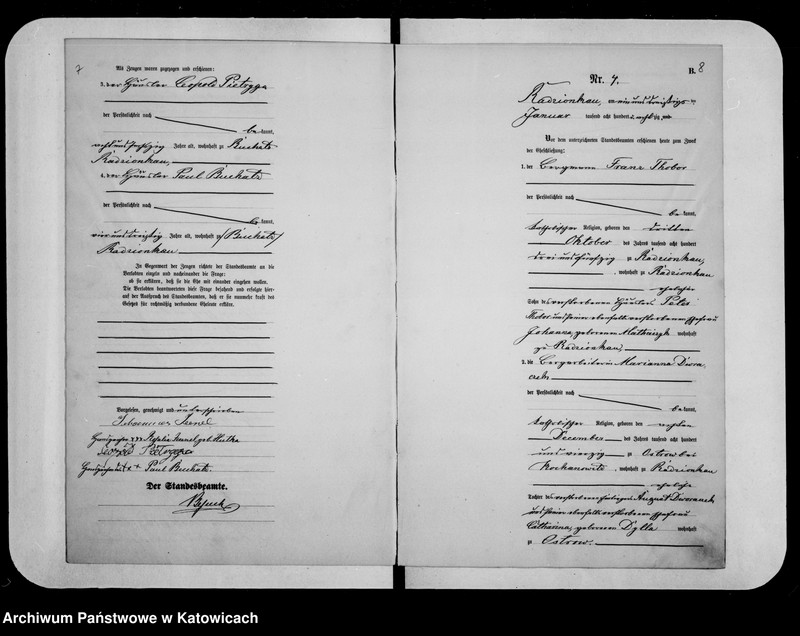 7
Als Zeugen waren zugezogen und erschienen:
3. der Häusler Leopold Pietryga
der Persönlichkeit nach
bekannt,
Jahre alt, wohnhaft zu Buchatz
Radzionkau,
4. der Häusler Paul Buchatz
der Persönlichkeit nach
bekannt,
vierunddreißig Jahre alt, wohnhaft zu (Buchatz)
Radzionkau
In Gegenwart der Zeugen richtete der Standesbeamte an die
Verlobten einzeln und nacheinander die Frage:
ob sie erklären, daß sie die Ehe mit einander eingehen wollen.
Die Verlobten beantworteten diese Frage bejahend und erfolgte hier-
auf der Ausspruch des Standesbeamten, daß er sie nunmehr kraft des
Gesetzes für rechtmäßig verbundene Eheleute erkläre.
Vorgelesen, genehmigt und unterschrieben
Johannes
Handzeichen +++ geb.
Leopold Pietryga
Paul Buchatz.
Der Standesbeamte.
B. 8
Nr. 7.
Radzionkau, am einunddreißigsten
Januar tausend acht hundert achtzig und
Vor dem unterzeichneten Standesbeamten erschienen heute zum Zweck
der Eheschließung:
1. der Bergmann Franz Thobor
der Persönlichkeit nach
bekannt,
katholischer Religion, geboren den dritten
Oktober des Jahres tausend acht hundert
dreiundfünfzig zu Radzionkau,
, wohnhaft zu Radzionkau
eheliche
Sohn des verstorbenen Häusler Peter
Thobor und seiner ebenfalls verstorbenen Ehefrau
Johanna, geborenen wohnhaft
zu Radzionkau,
2. die Bergarbeiterin Marianna Dwora,
czek
der Persönlichkeit nach
bekannt,
katholischer Religion, geboren den
December des Jahres tausend acht hundert
undvierzig zu Ostrow bei
Kochanowitz, wohnhaft zu Radzionkau
eheliche
Tochter des verstorbenen August Dworaczek
und seiner ebenfalls verstorbenen Ehefrau
Catharina, geborenen Dylla wohnhaft
zu Ostrow.
Archiwum Państwowe w Katowicach